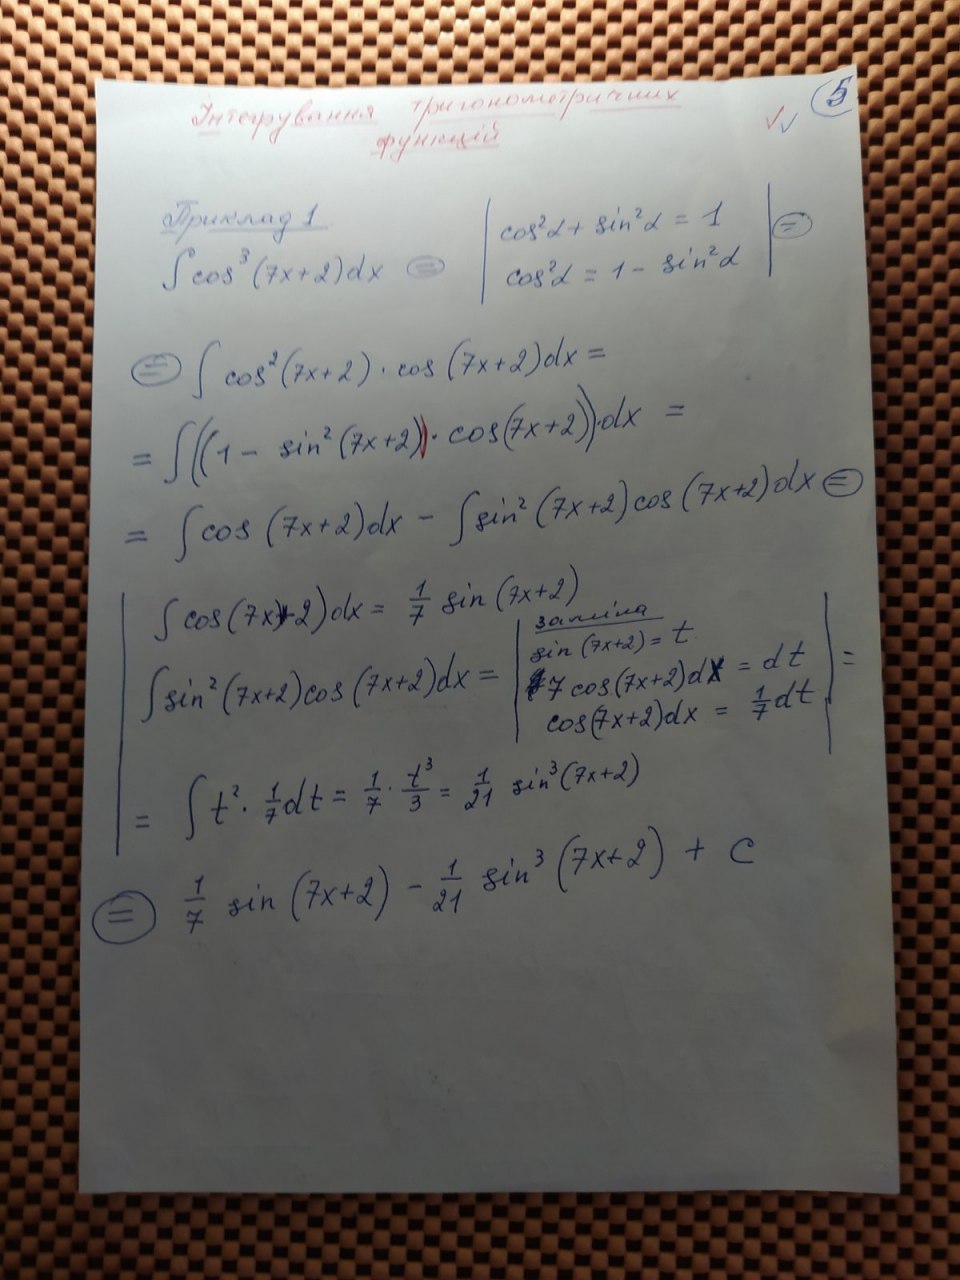 Інтегрування тригонометричних
функцій
5
Приклад 1
∫cos³(7x+2)dx =
cos²α + sin²α = 1
cos²α = 1 - sin²α
=
= ∫cos²(7x+2)·cos(7x+2)dx =
= ∫((1 - sin²(7x+2))·cos(7x+2))·dx =
= ∫cos(7x+2)dx - ∫sin²(7x+2)cos(7x+2)dx =
∫cos(7x+2)dx = 1/7 sin(7x+2)
∫sin²(7x+2)cos(7x+2)dx =
заміна
sin(7x+2) = t
7cos(7x+2)dx = dt
cos(7x+2)dx = 1/7 dt
=
= ∫t²·1/7 dt = 1/7·t³/3 = 1/21 sin³(7x+2)
= 1/7 sin(7x+2) - 1/21 sin³(7x+2) + C